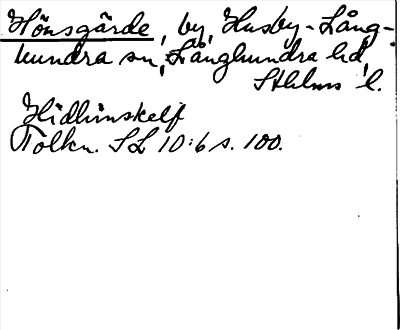 Hönsgärde, by, Husby-Lång-
hundra sn, Långhundra hd,
Sthlms l.
Hidhinskelf
Tolkn. SL 10:6 s. 100.